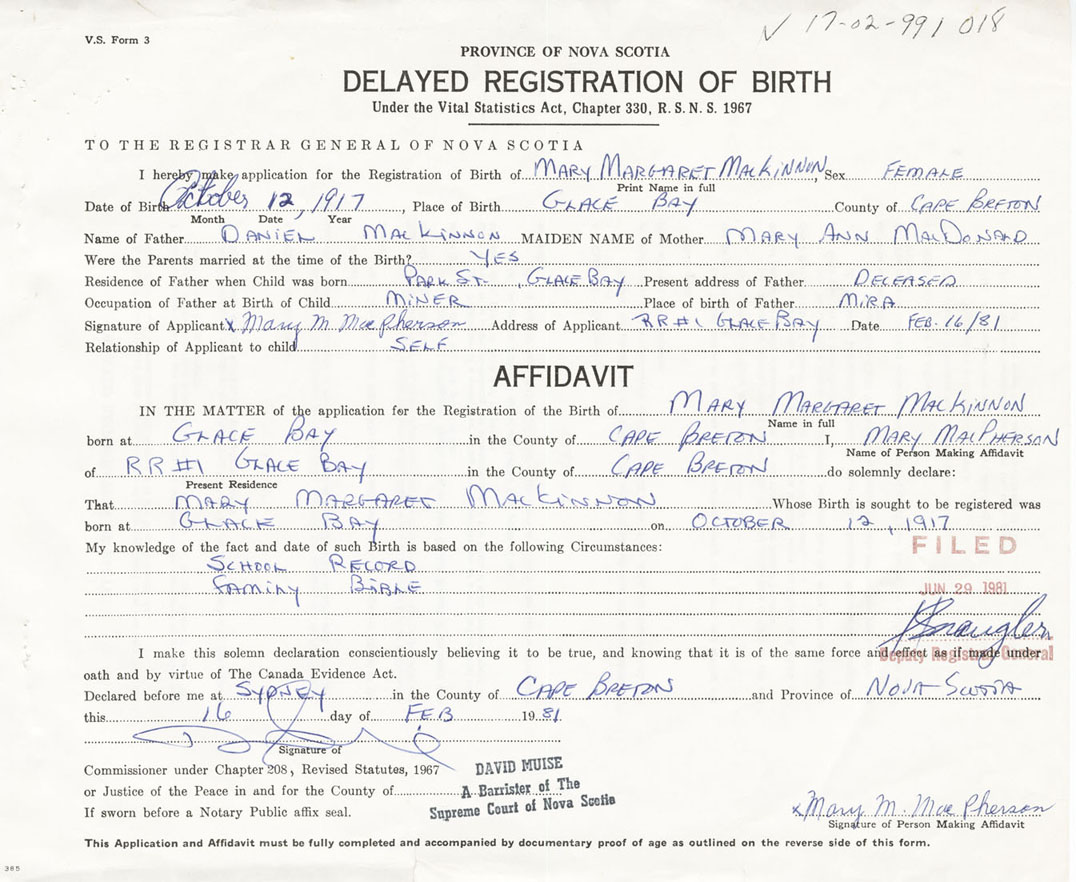 V.S. Form 3
√ 17-02-991 018
PROVINCE OF NOVA SCOTIA
DELAYED REGISTRATION OF BIRTH
Under the Vital Statistics Act, Chapter 330, R.S.N.S. 1967
TO THE REGISTRAR GENERAL OF NOVA SCOTIA
I hereby make application for the Registration of Birth of MARY MARGARET MACKINNON, Sex FEMALE
Print Name in full
Date of Birth October 12, 1917, Place of Birth GLACE BAY County of CAPE BRETON
Month Date Year
Name of Father DANIEL MACKINNON MAIDEN NAME of Mother MARY ANN MACDONALD
Were the Parents married at the time of the Birth? YES
Residence of Father when Child was born PARK ST., GLACE BAY Present address of Father DECEASED
Occupation of Father at Birth of Child MINER Place of birth of Father MIRA
Signature of Applicant x Mary M. MacPherson Address of Applicant RR#1 GLACE BAY Date FEB. 16/81
Relationship of Applicant to child SELF
AFFIDAVIT
IN THE MATTER of the application for the Registration of the Birth of MARY MARGARET MACKINNON
Name in full
born at GLACE BAY in the County of CAPE BRETON I, MARY MACPHERSON
Name of Person Making Affidavit
of RR#1 GLACE BAY in the County of CAPE BRETON do solemnly declare:
Present Residence
That MARY MARGARET MACKINNON Whose Birth is sought to be registered was
born at GLACE BAY on OCTOBER 12, 1917
My knowledge of the fact and date of such Birth is based on the following Circumstances:
FILED
SCHOOL RECORD
FAMILY BIBLE
JUN 29 1981
I make this solemn declaration conscientiously believing it to be true, and knowing that it is of the same force and effect as if made under
Deputy Registrar General
oath and by virtue of The Canada Evidence Act.
Declared before me at SYDNEY in the County of CAPE BRETON and Province of NOVA SCOTIA
this 16 day of FEB 1981
Signature of
Commissioner under Chapter 208, Revised Statutes, 1967
DAVID MUISE
or Justice of the Peace in and for the County of
A Barrister of The
If sworn before a Notary Public affix seal.
Supreme Court of Nova Scotia
x Mary M. MacPherson
Signature of Person Making Affidavit
This Application and Affidavit must be fully completed and accompanied by documentary proof of age as outlined on the reverse side of this form.
385